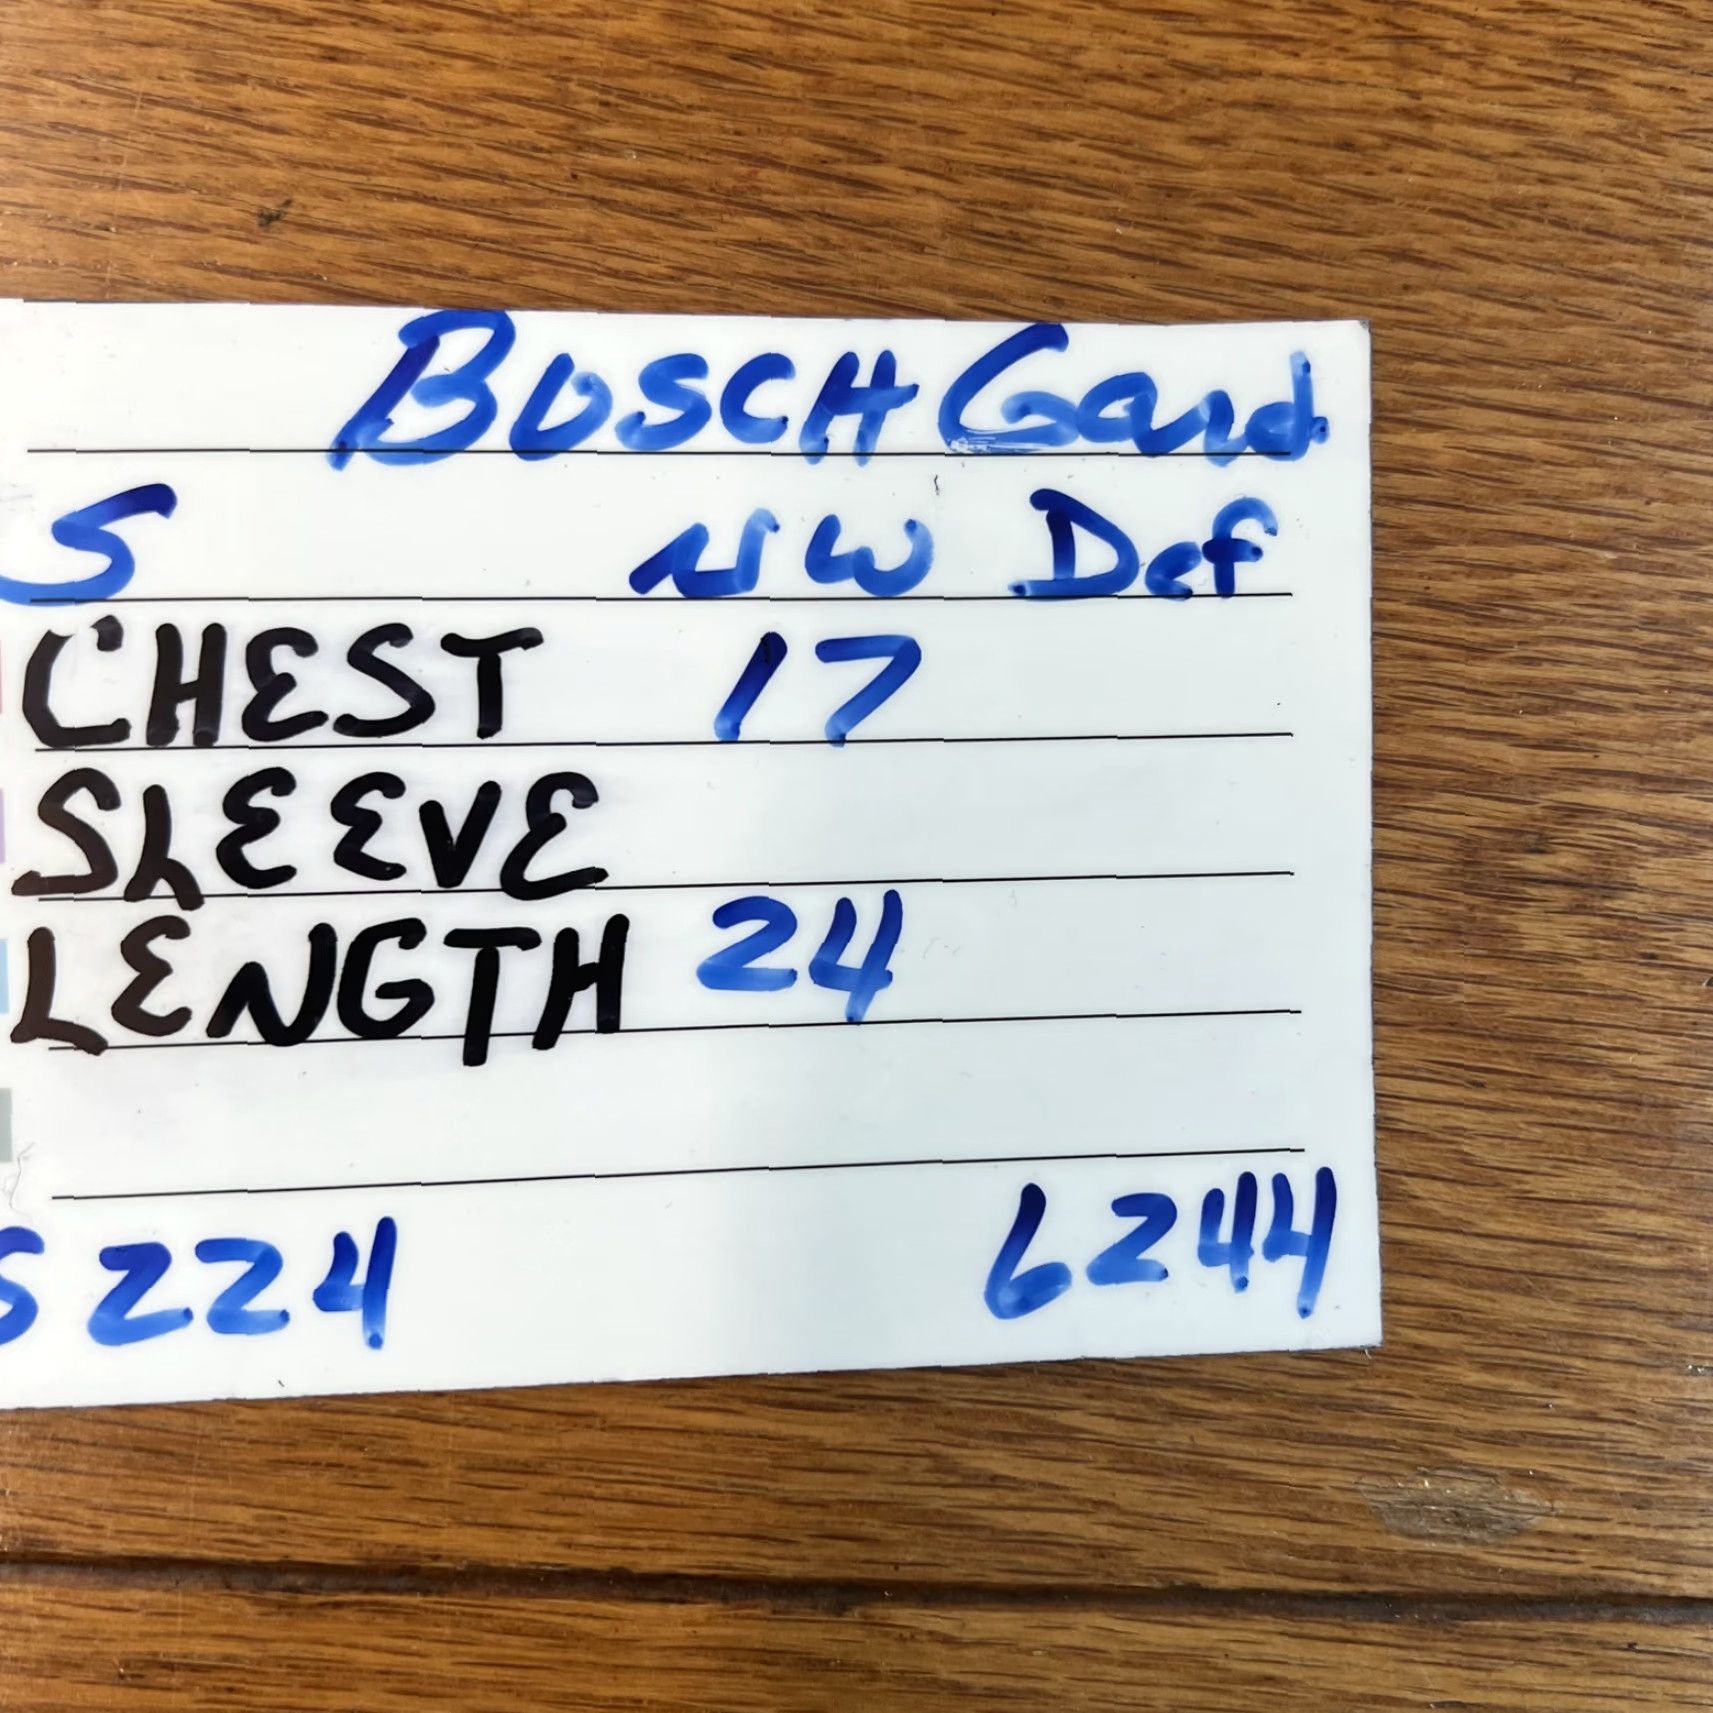 BOSCH Gard.
S NW Def
CHEST 17
SLEEVE
LENGTH 24
S224 6244